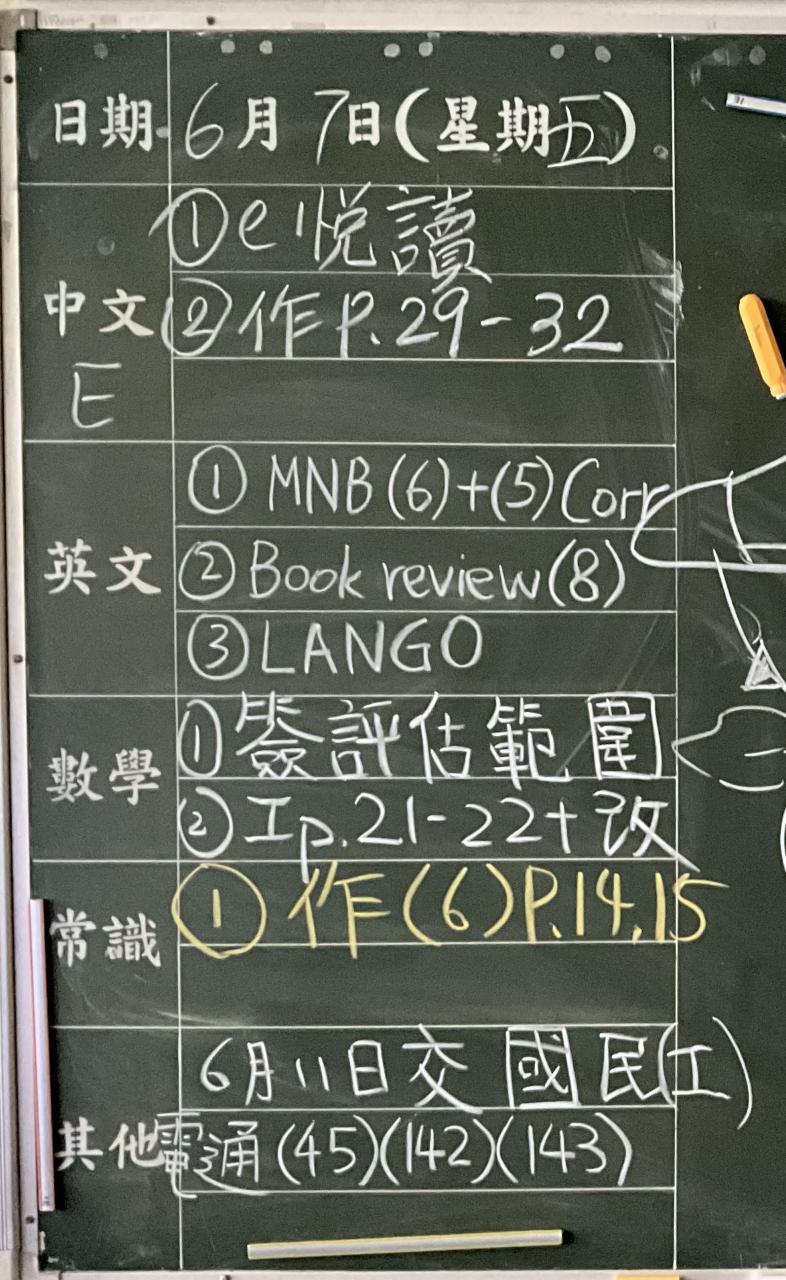 日期 6月7日(星期五)
中文
E
①e悅讀
②作P.29-32
英文
①MNB(6)+(5)Corr
②Book review(8)
③LANGO
數學
①簽評估範圍
②Ip.21-22+改
常識
①作(6)P.14,15
其他
6月11日交國民(工)
電通(45)(142)(143)